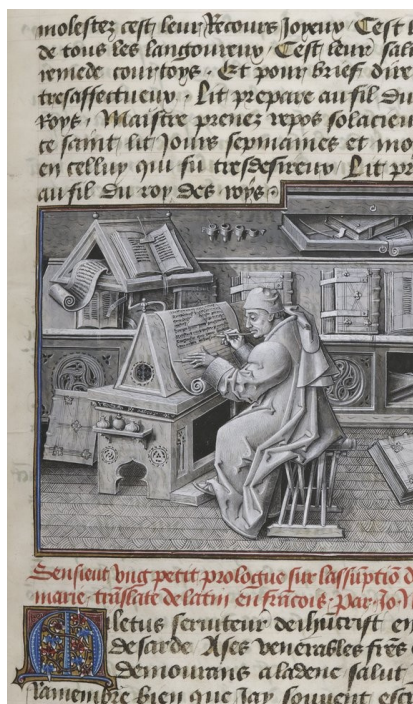 molestez cest leur Recours Joyeux Cest l
de tous les langoureux Cest leur sal
remede courtoys. Et pour brief dire
tresaffectueux. Lit prepare au fil du
Roys, Maistre prenez repos solacieu
ce saint lit Jours sepmaines et mo
en celluy qui fu tresdesireux Lit pr
au fil du roy des roys
Sensieut vng petit prologue sur lassūptiō d
marie translate de latin en francois Par Jo
M letus scruteur de ihūcrist en
de sarde Ases venerables freres
demourans a ladece salut
Ramembre bien que Jay souvent escr